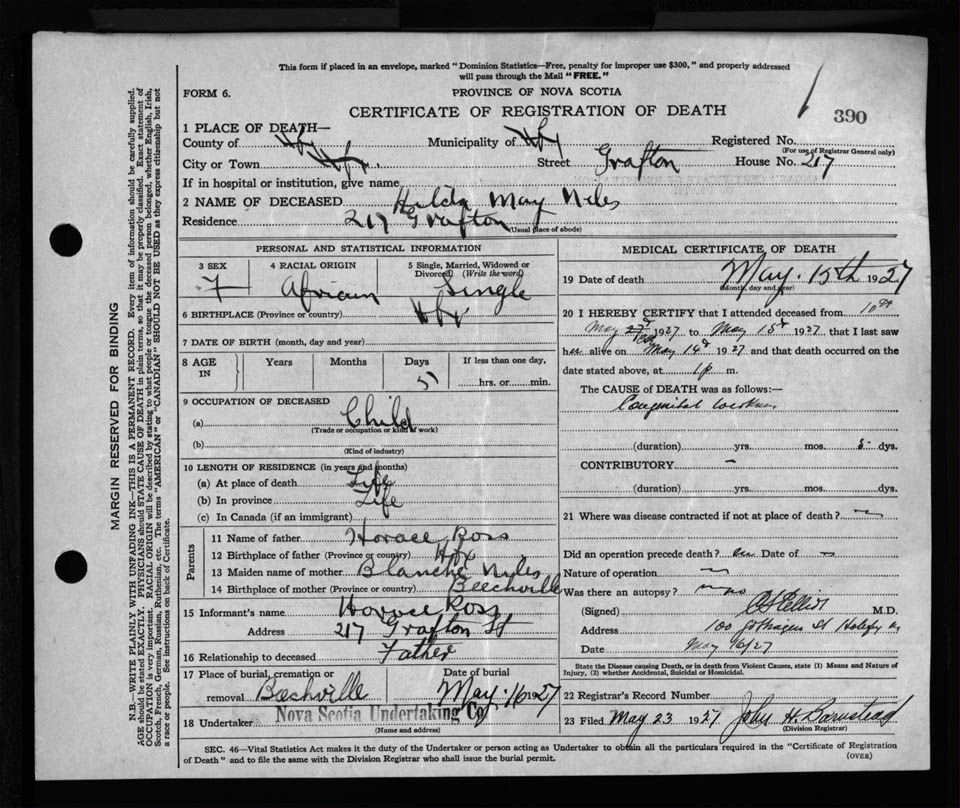 This form if placed in an envelope, marked "Dominion Statistics—Free, penalty for improper use $300," and properly addressed
will pass through the Mail "FREE."
FORM 6.
PROVINCE OF NOVA SCOTIA
CERTIFICATE OF REGISTRATION OF DEATH
390
1 PLACE OF DEATH—
County of Hfx Municipality of Hfx Registered No.
(For use of Registrar General only)
City or Town Hfx Street Grafton House No. 217
If in hospital or institution, give name
2 NAME OF DECEASED Hilda May Niles
Residence 217 Grafton
(Usual place of abode)
PERSONAL AND STATISTICAL INFORMATION
3 SEX
F
4 RACIAL ORIGIN
African
5 Single, Married, Widowed or
Divorced (Write the word)
Single
6 BIRTHPLACE (Province or country) Hfx
7 DATE OF BIRTH (month, day and year)
8 AGE
IN
Years
Months
Days
If less than one day,
hrs. or min.
9 OCCUPATION OF DECEASED
(a) Child
(Trade or occupation or kind of work)
(b)
(Kind of industry)
10 LENGTH OF RESIDENCE (in years and months)
(a) At place of death Life
(b) In province Life
(c) In Canada (if an immigrant)
Parents
11 Name of father Horace Ross
12 Birthplace of father (Province or country) Hfx
13 Maiden name of mother Blanche Niles
14 Birthplace of mother (Province or country) Beechville
15 Informant's name Horace Ross
Address 217 Grafton St
16 Relationship to deceased Father
17 Place of burial, cremation or
removal Beechville
Date of burial
May 16 1927
18 Undertaker Nova Scotia Undertaking Co
(Name and address)
MEDICAL CERTIFICATE OF DEATH
19 Date of death May 15th 1927
(Month, day and year)
20 I HEREBY CERTIFY that I attended deceased from 10th
May 1927 to May 15th 1927 that I last saw
her alive on May 14th 1927 and that death occurred on the
date stated above, at 1 p m.
The CAUSE of DEATH was as follows:—
Congenital weakness
(duration) yrs. mos. 5 dys.
CONTRIBUTORY —
(duration) yrs. mos. dys.
21 Where was disease contracted if not at place of death?
Did an operation precede death? Date of
Nature of operation
Was there an autopsy? no
(Signed) M.D.
Address 100 St
Date May 16/27
State the Disease causing Death, or in death from Violent Causes, state (1) Means and Nature of
Injury, (2) whether Accidental, Suicidal or Homicidal.
22 Registrar's Record Number
23 Filed May 23 1927 John H. Barnstead
(Division Registrar)
SEC. 46—Vital Statistics Act makes it the duty of the Undertaker or person acting as Undertaker to obtain all the particulars required in the "Certificate of Registration
of Death" and to file the same with the Division Registrar who shall issue the burial permit.
(OVER)
MARGIN RESERVED FOR BINDING
N.B.—WRITE PLAINLY WITH UNFADING INK—THIS IS A PERMANENT RECORD. Every item of information should be carefully supplied.
AGE should be stated EXACTLY. PHYSICIANS should STATE CAUSE OF DEATH in plain terms, so that it may be properly classified. Exact statement of
OCCUPATION is very important. RACIAL ORIGIN will be described by stating to what people or tongue the deceased person belonged, whether English, Irish,
Scotch, French, German, Russian, Ruthenian, etc. The terms "AMERICAN" or "CANADIAN" SHOULD NOT BE USED as they express citizenship but not
a race or people. See instructions on back of Certificate.